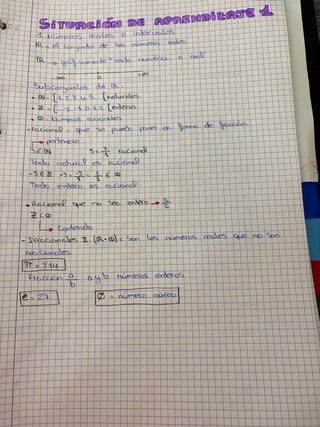 SITUACIÓN DE APRENDIZAJE 1
1. Números reales e intervalos
IR = el conjunto de los números reales
IR → gráficamente recta numérica o real
-∞ 0 +∞
Subconjuntos de IR:
• IN = {1, 2, 3, 4, 5... {naturales
• Z = {... -2, -1, 0, 1, 2 {enteros
• Q = Números racionales
-racional: que se puede poner en forma de fracción.
→ pertenece
3 ∈ IN racional
Todo natural es racional
-3 ∈ Z ∈ Q
Todo entero es racional
• Racional que no sea entero →
Z ⊂ Q
→ Contenido
- Irracionales II (IR-Q) = son los números reales que no son
racionales
π = 3'14
Fracción a/b a y b números enteros
e = 2'7 Ø = número aúreo